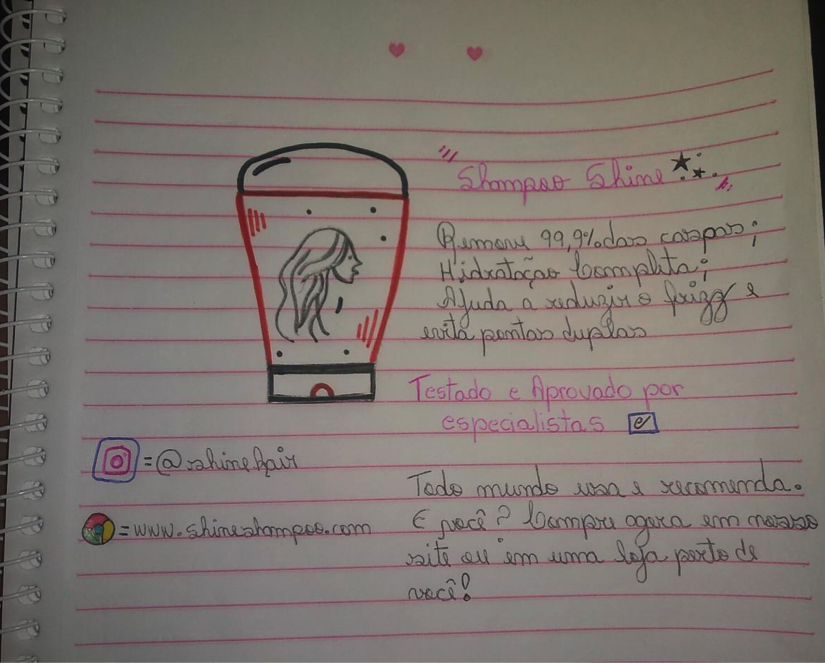 "Shampoo Shine"
Remove 99,9% das caspas;
Hidratação Completa;
Ajuda a reduzir o frizz e
evita pontas duplas
Testado e Aprovado por
especialistas
= @shinehair
= www.shineshampoo.com
Todo mundo usa e recomenda.
E você? Compre agora em nosso
site ou em uma loja perto de
você!